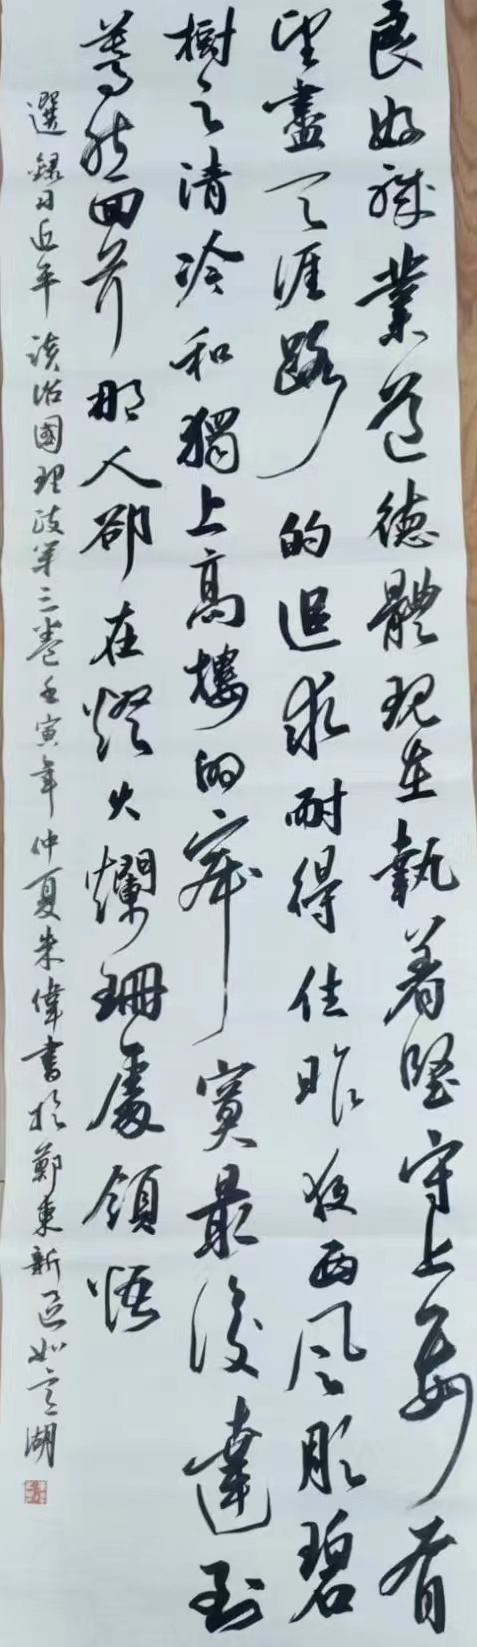 良好職業道德體現在執着堅守上要有
望盡天涯路的追求耐得住昨夜西風凋碧
樹之清冷和獨上高樓的寂寞最後達到
驀然回首那人卻在燈火爛珊處領悟
選錄習近平談治國理政第三卷壬寅年仲夏朱偉書於鄭東新區如意湖